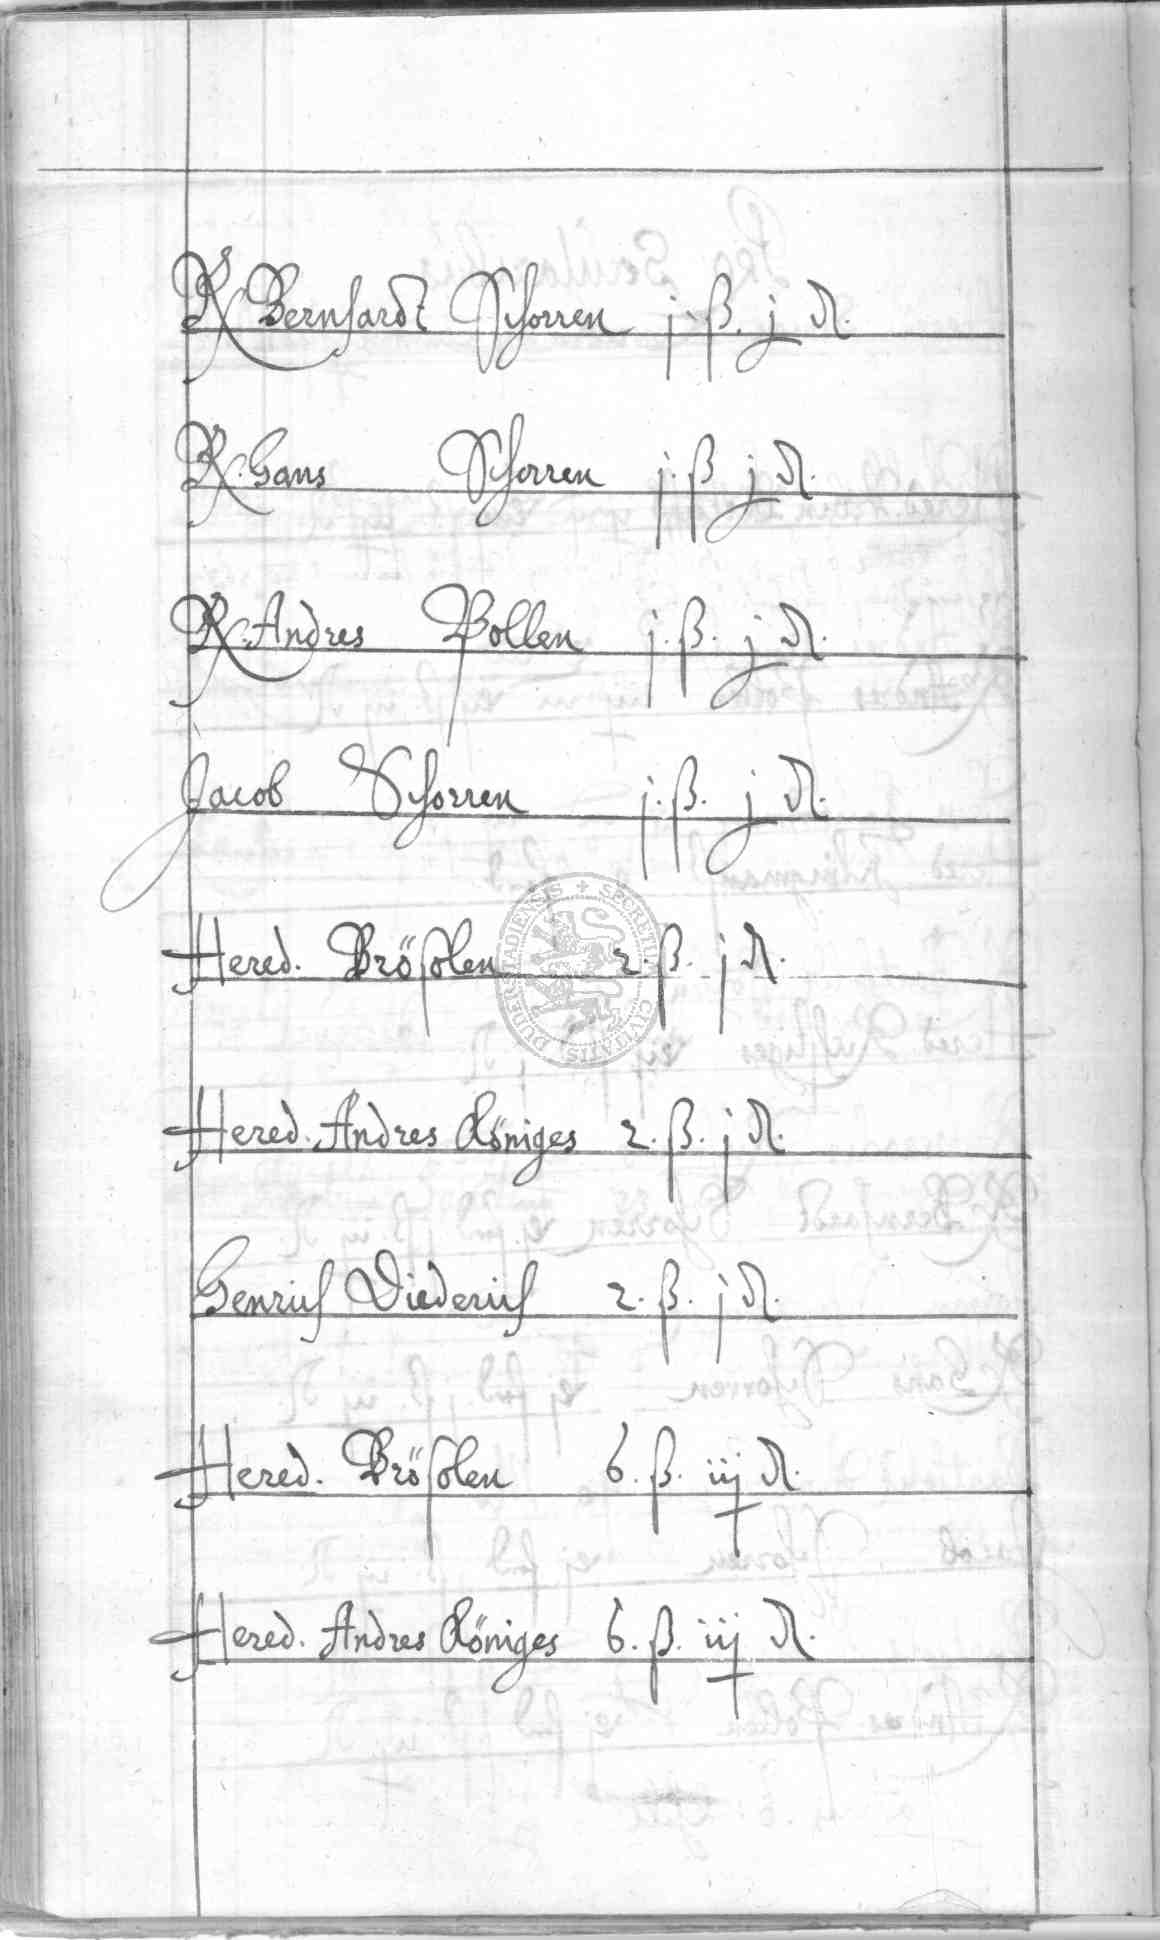 R Bernhardt Schorren j. ß. j ₰.
R. Hans Schorren j. ß j ₰.
R. Andres Pollen j. ß. j ₰.
Jacob Schorren j. ß. j ₰.
Hered. Brösolen 2. ß. j ₰.
Hered. Andres Königes 2. ß. j ₰.
Henrich Diederich 2. ß. j ₰.
Hered. Brösolen 6. ß. iij ₰.
Hered. Andres Königes 6. ß. iij ₰.
SECRETUM CIVITATIS DUDERSTADIENSIS